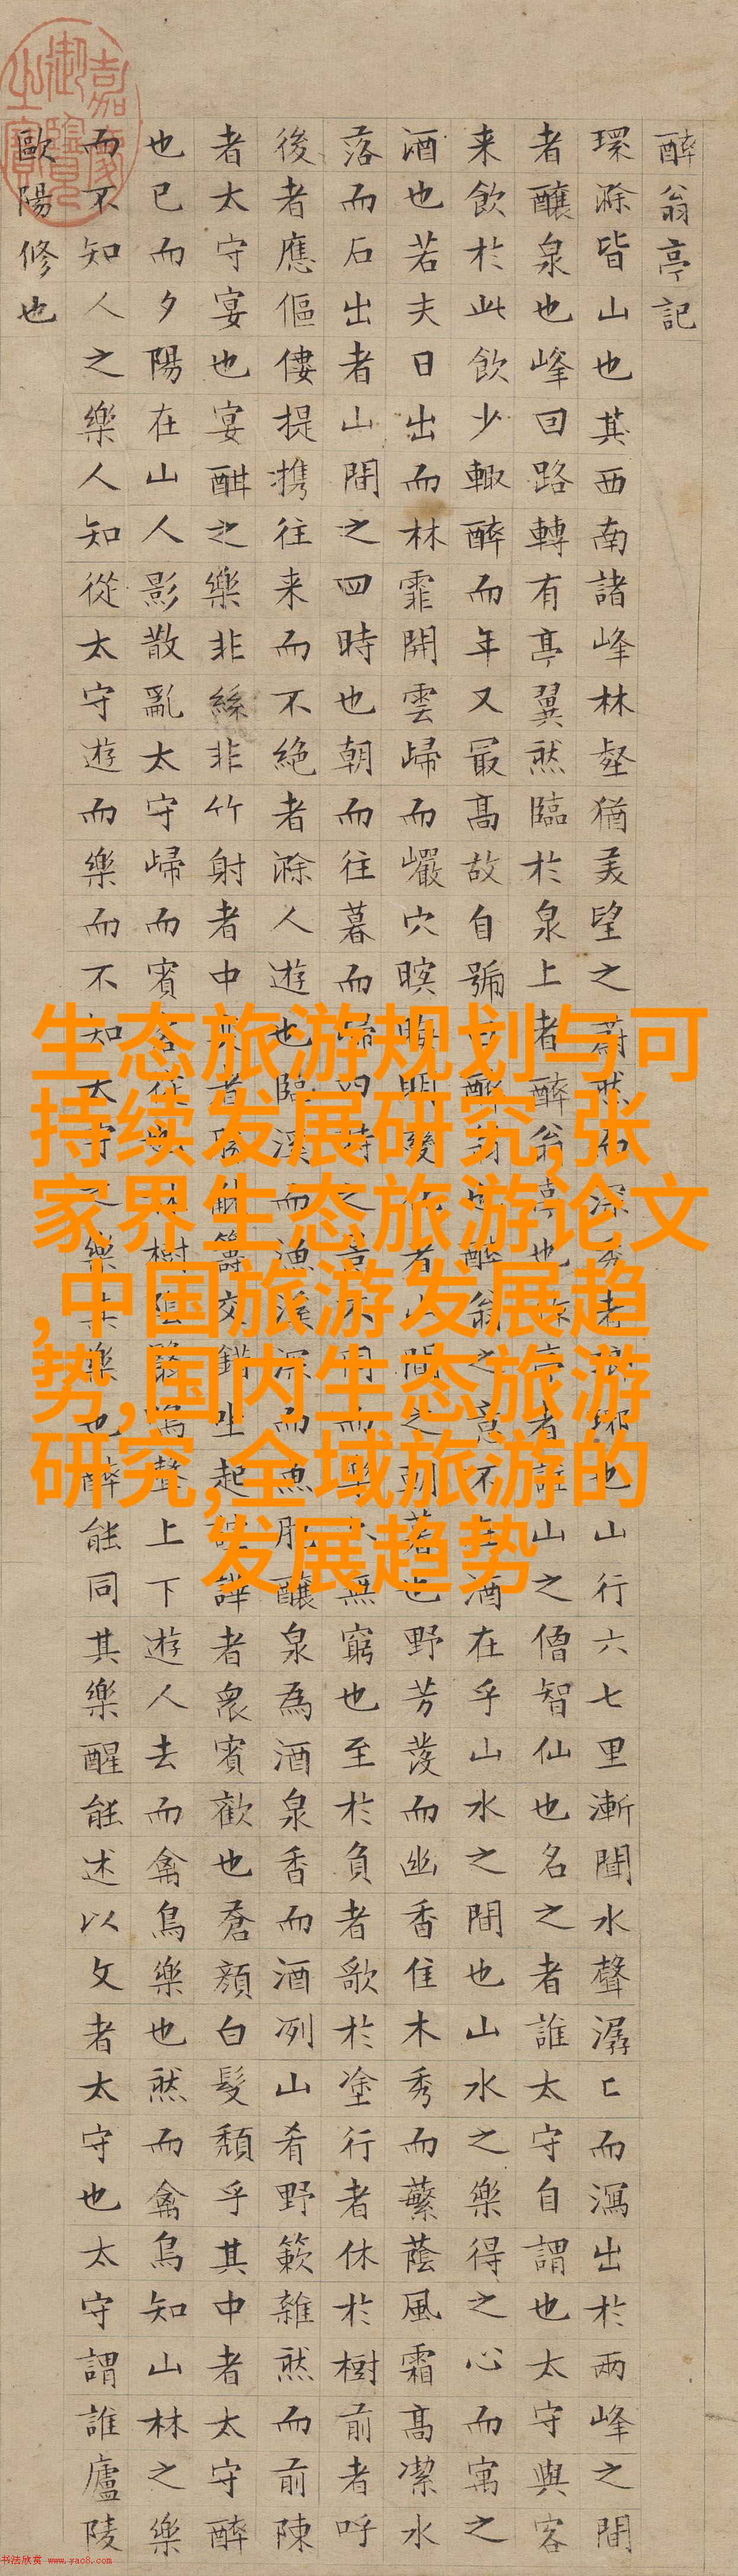 醉翁亭記
環滁皆山也其西南諸峰林壑猶美望之蔚然而深秀者琊也山行六七里漸聞水聲潺匕而瀉出於兩峰之間
者釀泉也峰回路轉有亭翼然臨於泉上者醉翁亭也作亭者誰山之僧智仙也名之者誰太守自謂也太守與客
来飲於此飲少輒醉而年又最高故自號曰醉翁也醉翁之意不在酒在乎山水之間也山水之樂得之心而寓之
酒也若夫日出而林霏開雲歸而巖穴暝晦明變化者山間之朝暮也野芳發而幽香佳木秀而蘩蔭風霜高潔水
落而石出者山間之四時也朝而往暮而歸四時之景不同而樂亦無窮也至於負者歌於塗行者休於樹前者呼
後者應傴僂提携往来而不絶者滁人遊也臨溪而漁溪深而魚肥釀泉為酒泉香而酒冽山肴野簌雜然而前陳
者太守宴也宴酣之樂非絲非竹射者中弈者勝觥籌交錯坐起諠譁者衆賓歡也蒼顏白髮頽乎其中者太守醉
也已而夕陽在山人影散亂太守歸而賓客從也樹陰翳鳴聲上下遊人去而禽鳥樂也然而禽鳥知山林之樂
而不知人之樂人知從太守遊而樂而不知太守之樂其樂也醉能同其樂醒能述以文者太守也太守謂誰廬陵
歐陽修也
嘉慶御覽之寶
生态旅游规划与可
持续发展研究,张
家界生态旅游论文
,中国旅游发展趋
势,国内生态旅游
研究,全域旅游的
发展趋势
书法欣赏 www.yac8.com